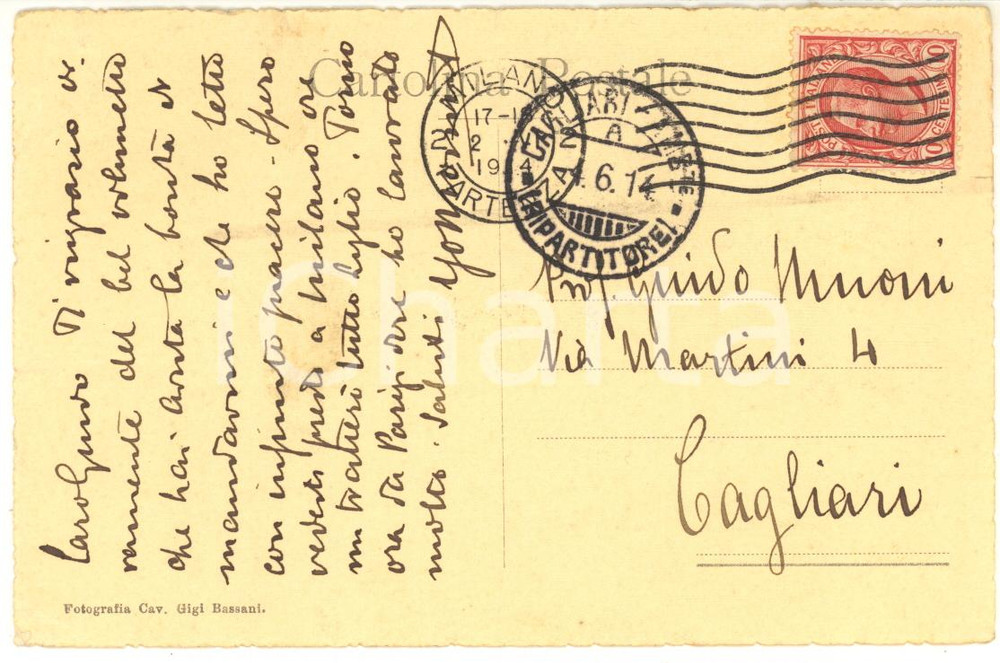 Cartolina Postale
Caro Guido Ti ringrazio vi-
vamente del bel volumetto
che hai avuta la bontà di
mandarmi e che ho letto
con infinito piacere. Spero
vederti presto a Milano ove
mi tratterò tutto luglio. Torno
ora da Parigi dove ho lavorato
molto. Saluti
MILANO
17-1
2
19 4
PARTENZA
CAGLIARI
A
4.6.14
(RIPARTITORE)
POSTE ITALIANE
CENTESIMI 10
Prof. Guido Muoni
Via Martini 4
Cagliari
iCharta
Fotografia Cav. Gigi Bassani.